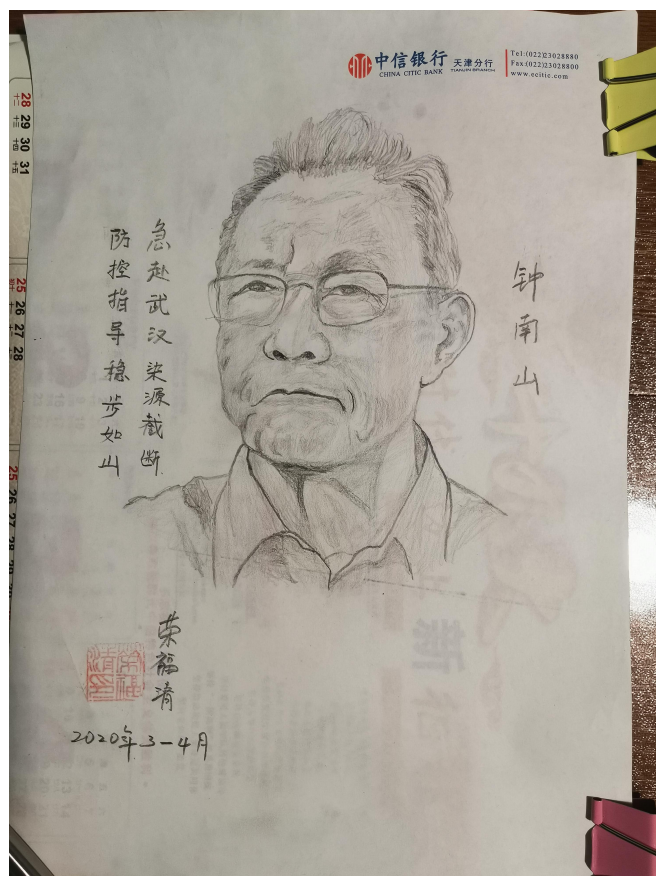 中信银行 天津分行
CHINA CITIC BANK TIANJIN BRANCH
Tel:(022)23028880
Fax:(022)23028800
www.ecitic.com
钟南山
急赴武汉 染源截断
防控指导 稳步如山
荣福清
2020年3-4月
28
十二
29
十三
30
十四
31
十五
25
26
27
28
25
26
27
28